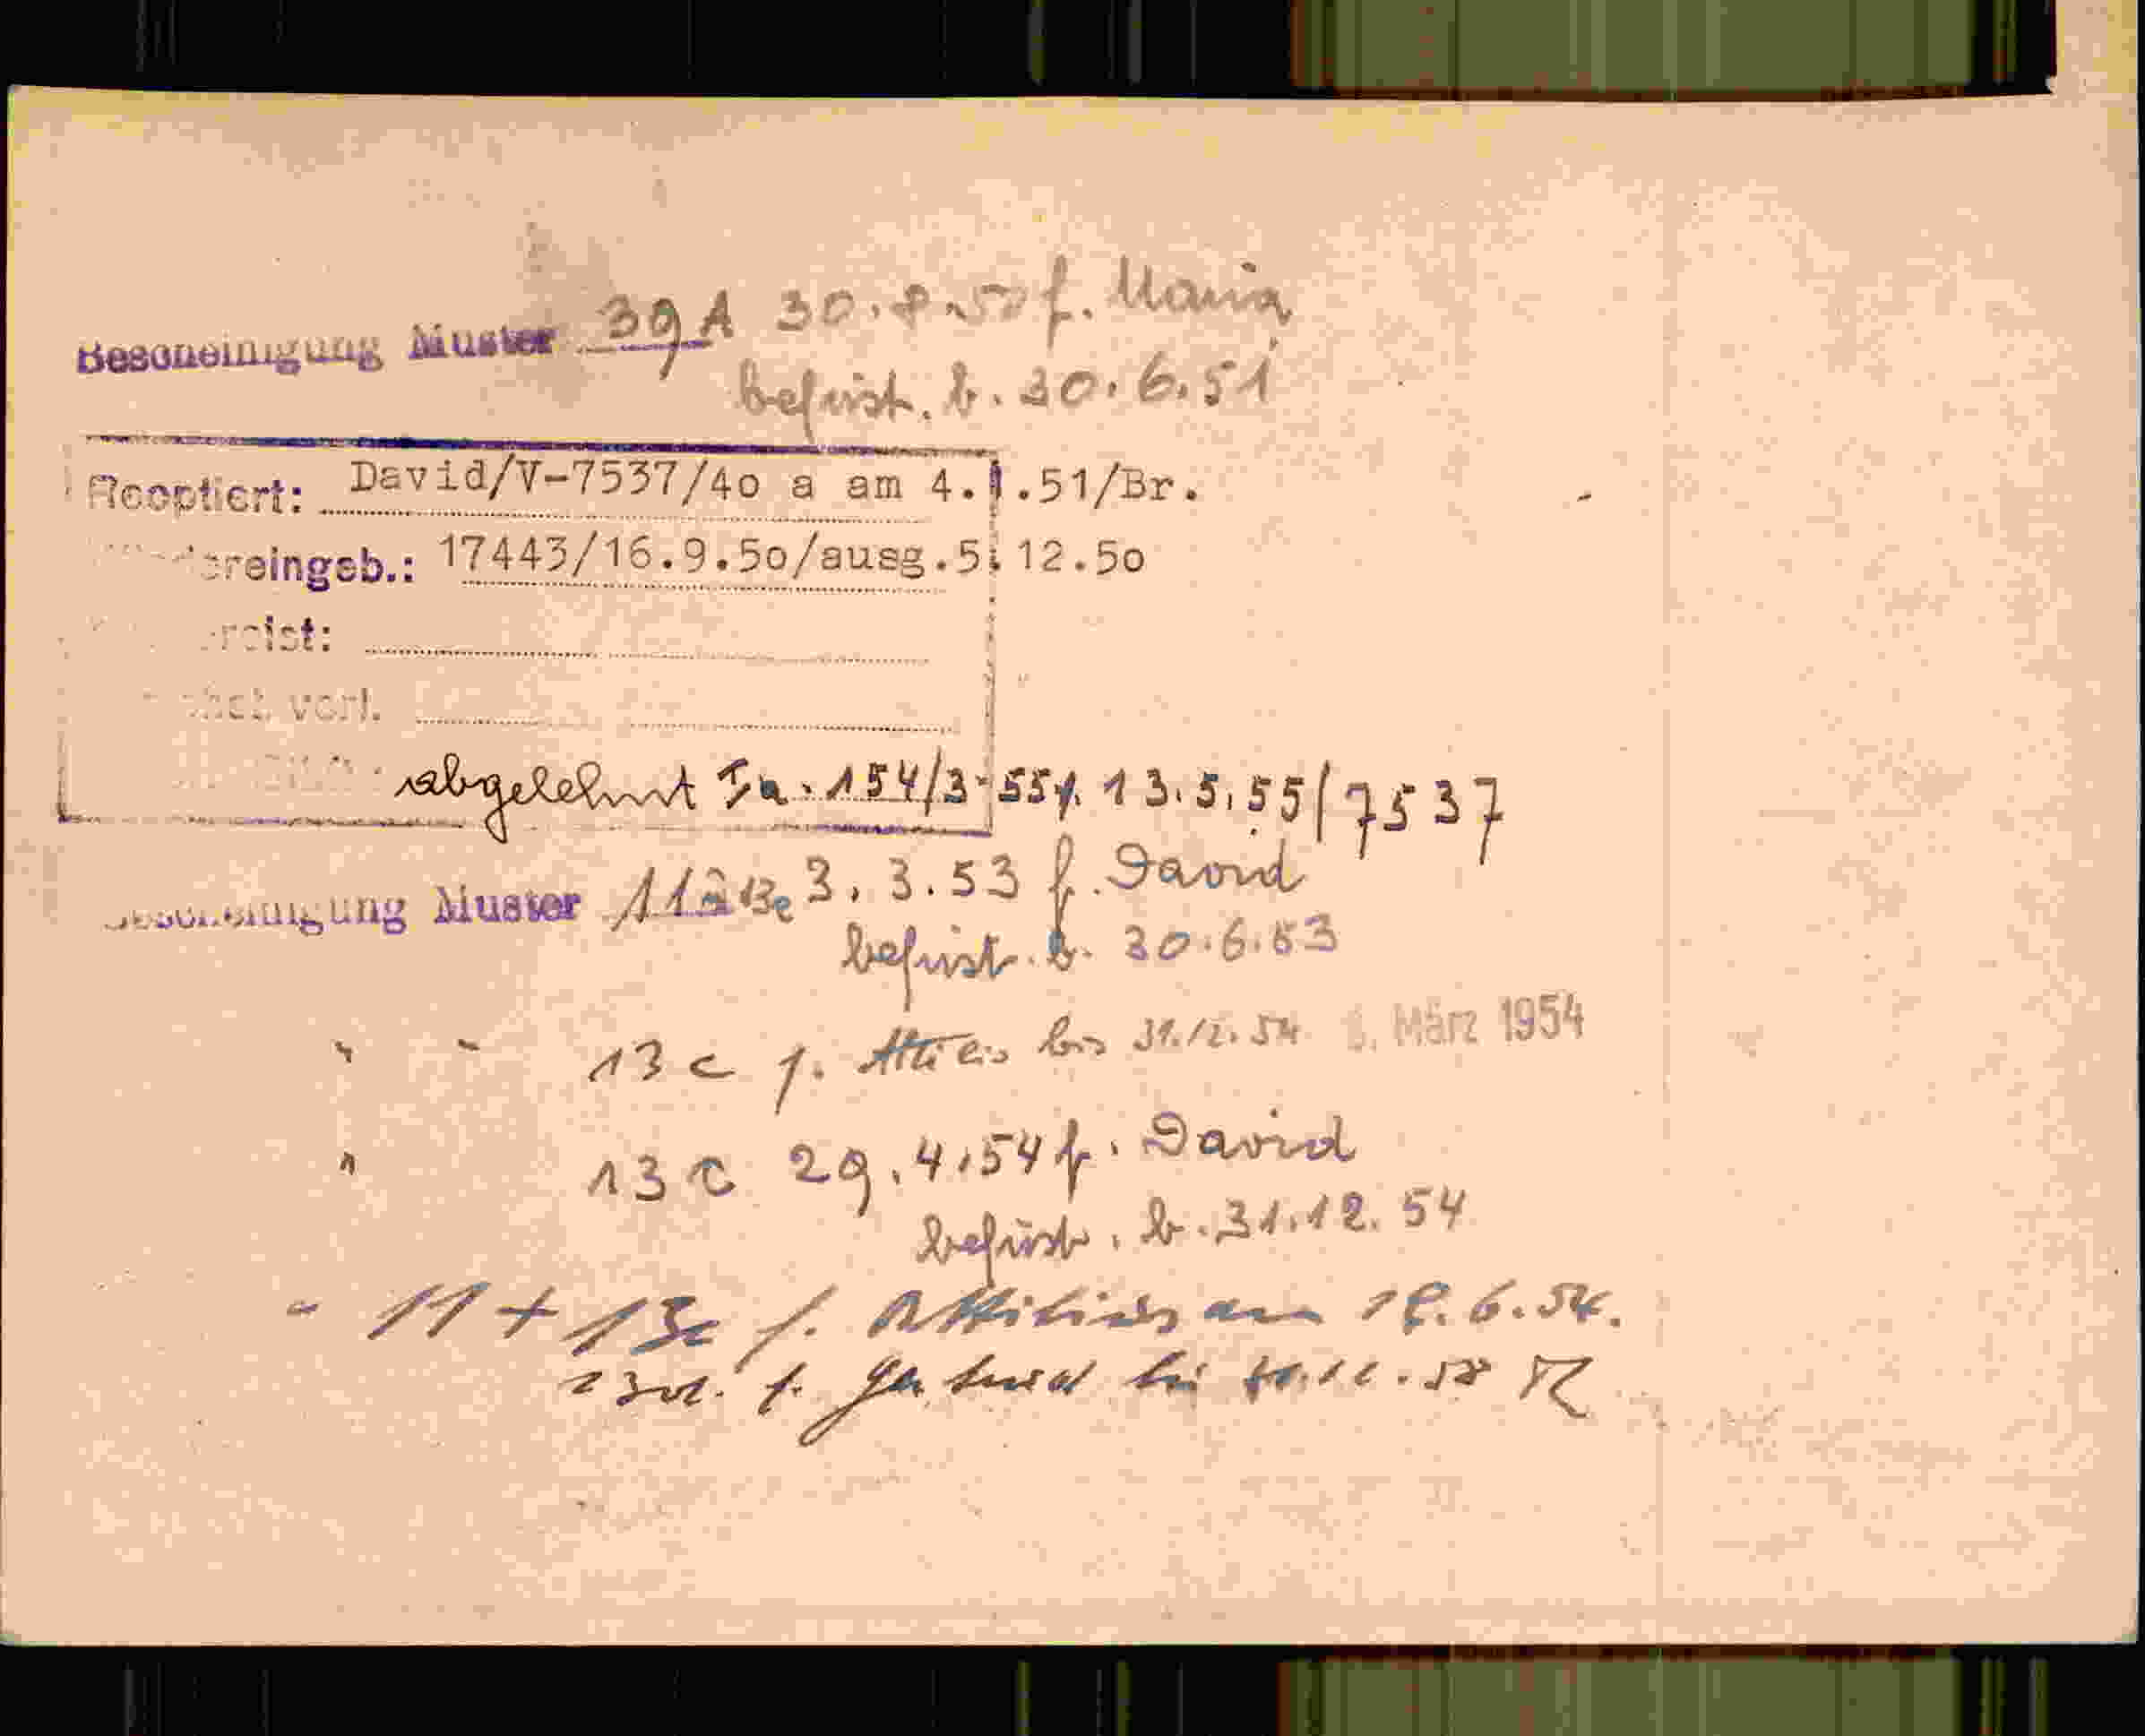 Bescheinigung Muster 39 A 30.8.50 f. Maria
befrist. b. 30.6.51
Reoptiert: David/V-7537/4o a am 4.1.51/Br.
reingeb.: 17443/16.9.5o/ausg.5.12.5o
reist:
vorl.
abgelehnt 154/3-55 13.5.55/7537
Bescheinigung Muster 11 3.3.53 f. David
befrist. b. 30.6.53
" " 13 c f. bis 31.12.54 März 1954
" 13 c 29.4.54 f. David
befrist. b. 31.12.54
" 11 + 13c f. am 18.6.54.
f. bis